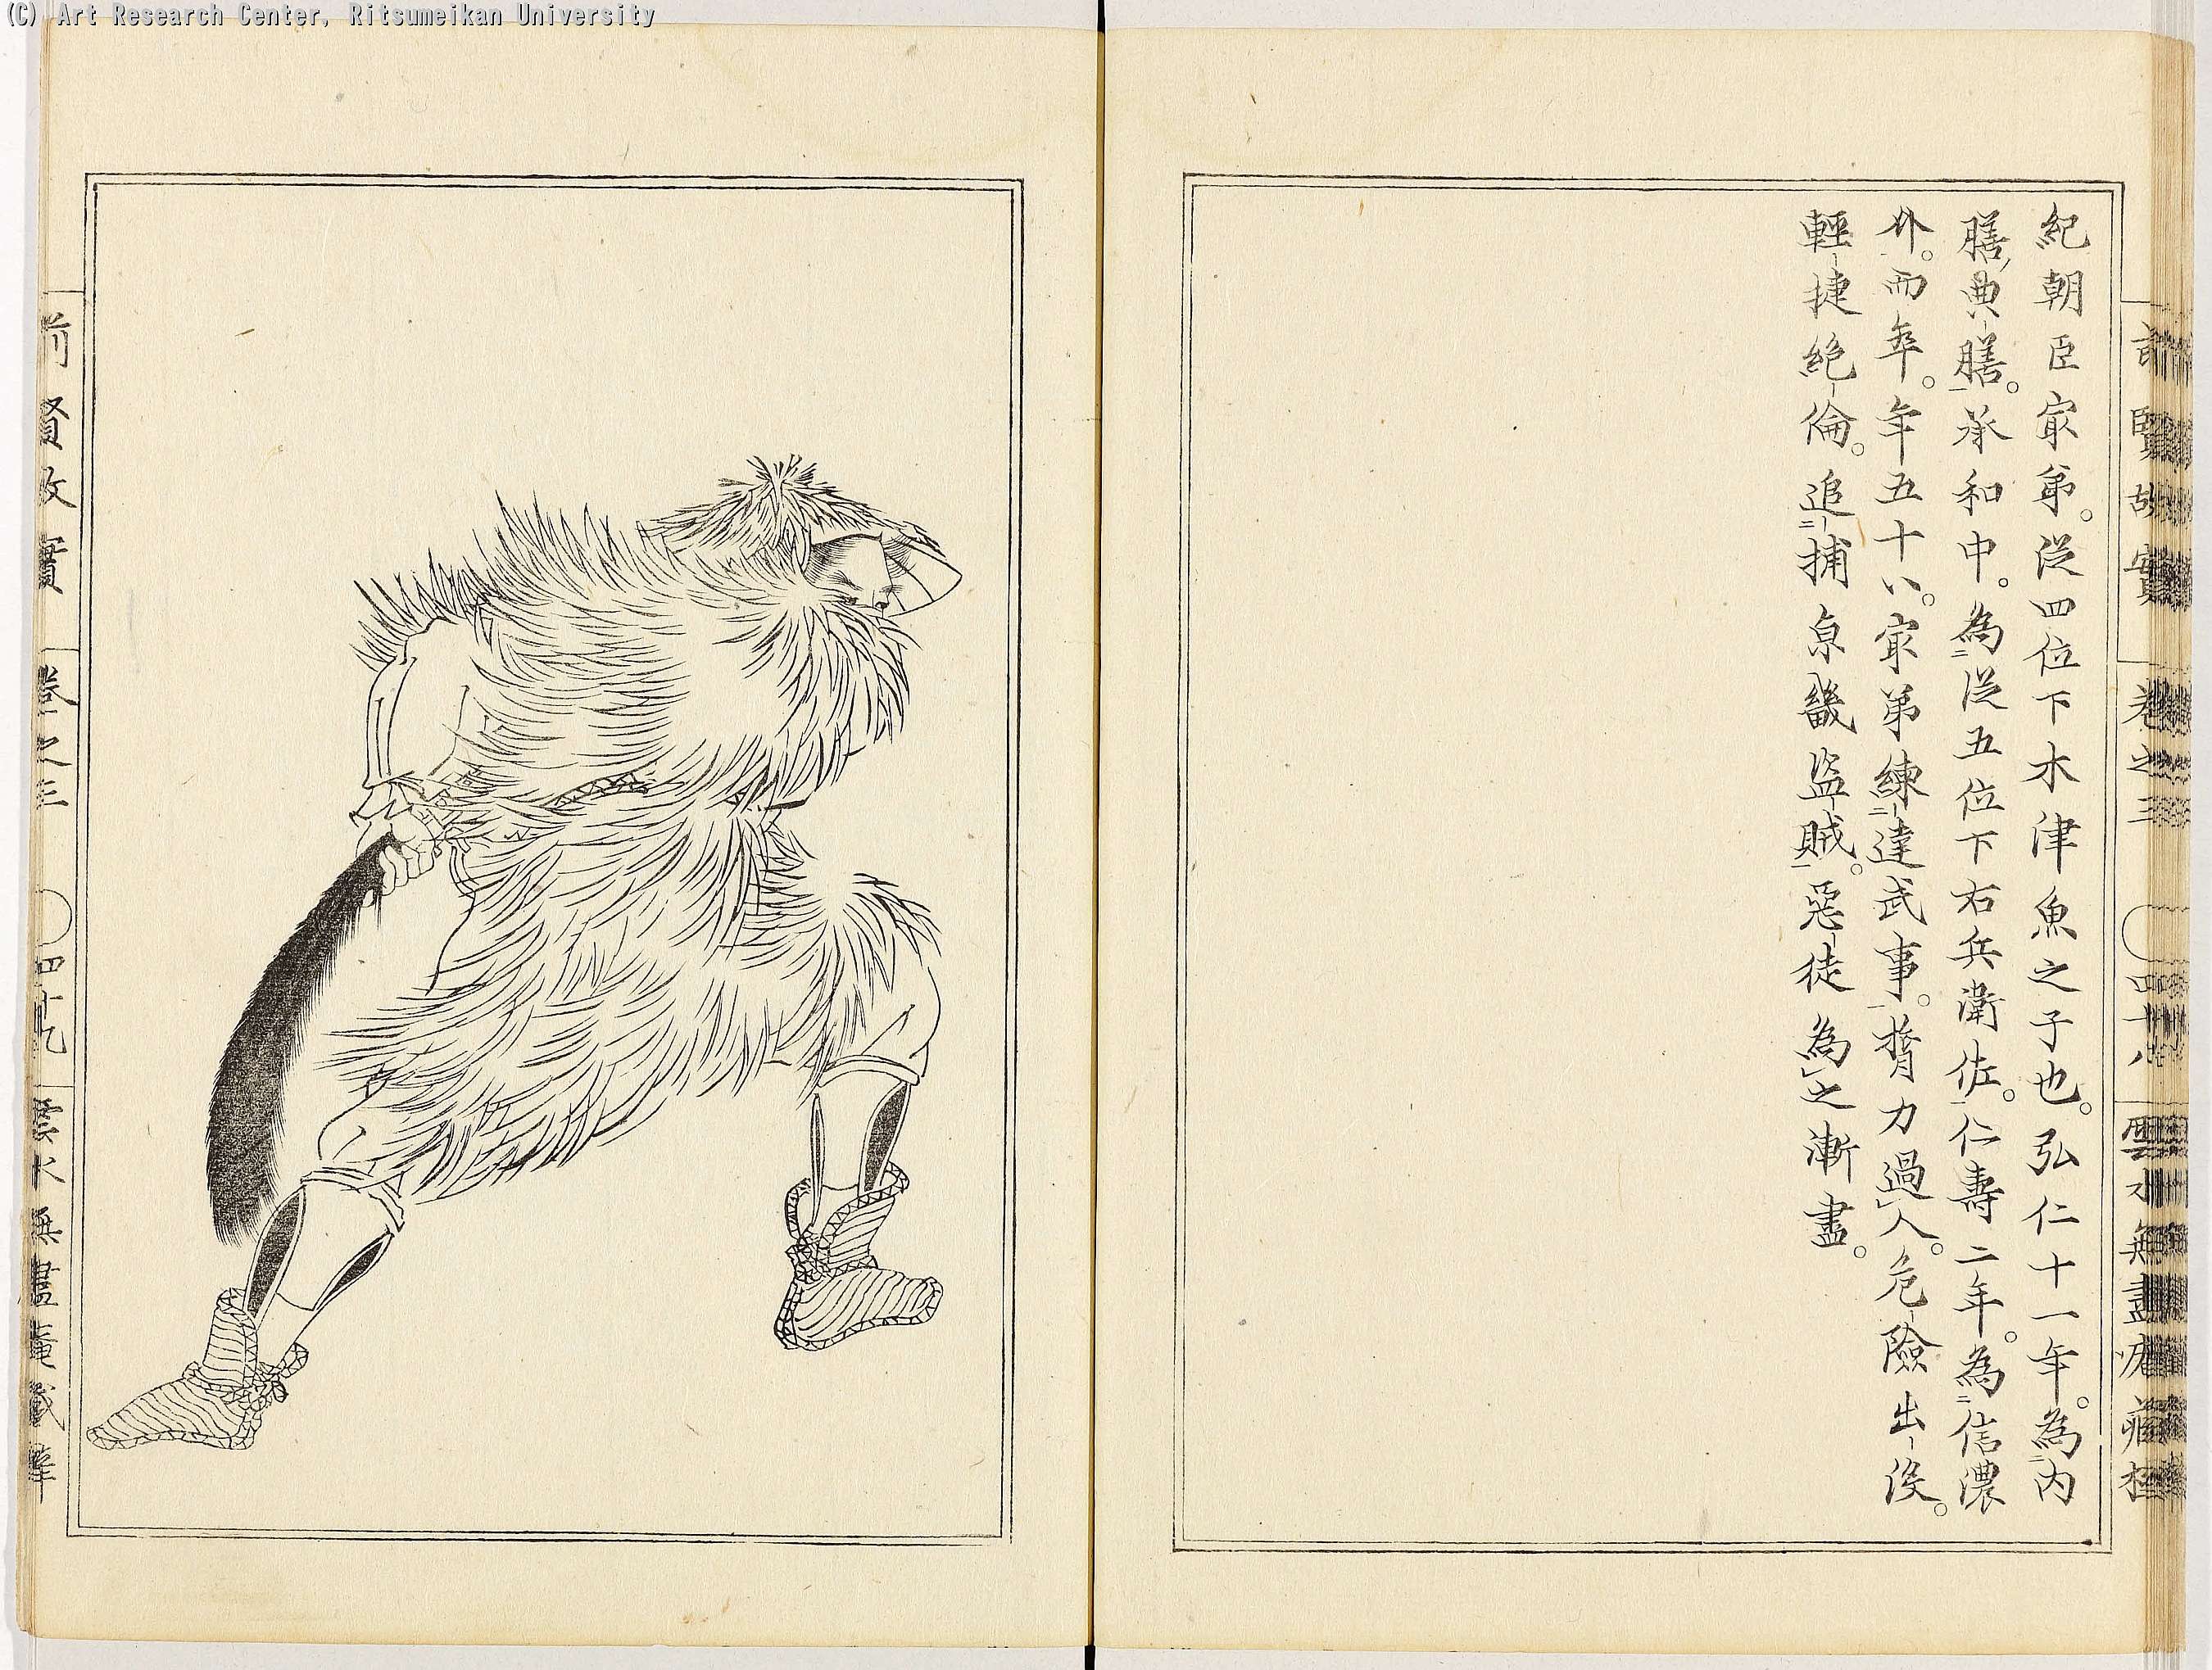 (C) Art Research Center, Ritsumeikan University
前賢故實 卷之三 ○四十八 雲水無盡庵藏
紀朝臣冣弟。從四位下木津魚之子也。弘仁十一年。為内
膳典膳。承和中。為從五位下右兵衛佐。仁壽二年。為信濃
介。而卒。年五十八。冣弟練達武事。膂力過人。危險出沒。
輕捷絶倫。追捕京畿盗賊。惡徒為之漸盡。
前賢故實 卷之三 ○四十九 雲水無盡庵藏